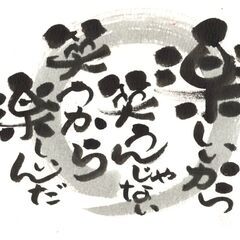 楽しいから
笑うんじゃない
笑うから
楽しいんだ